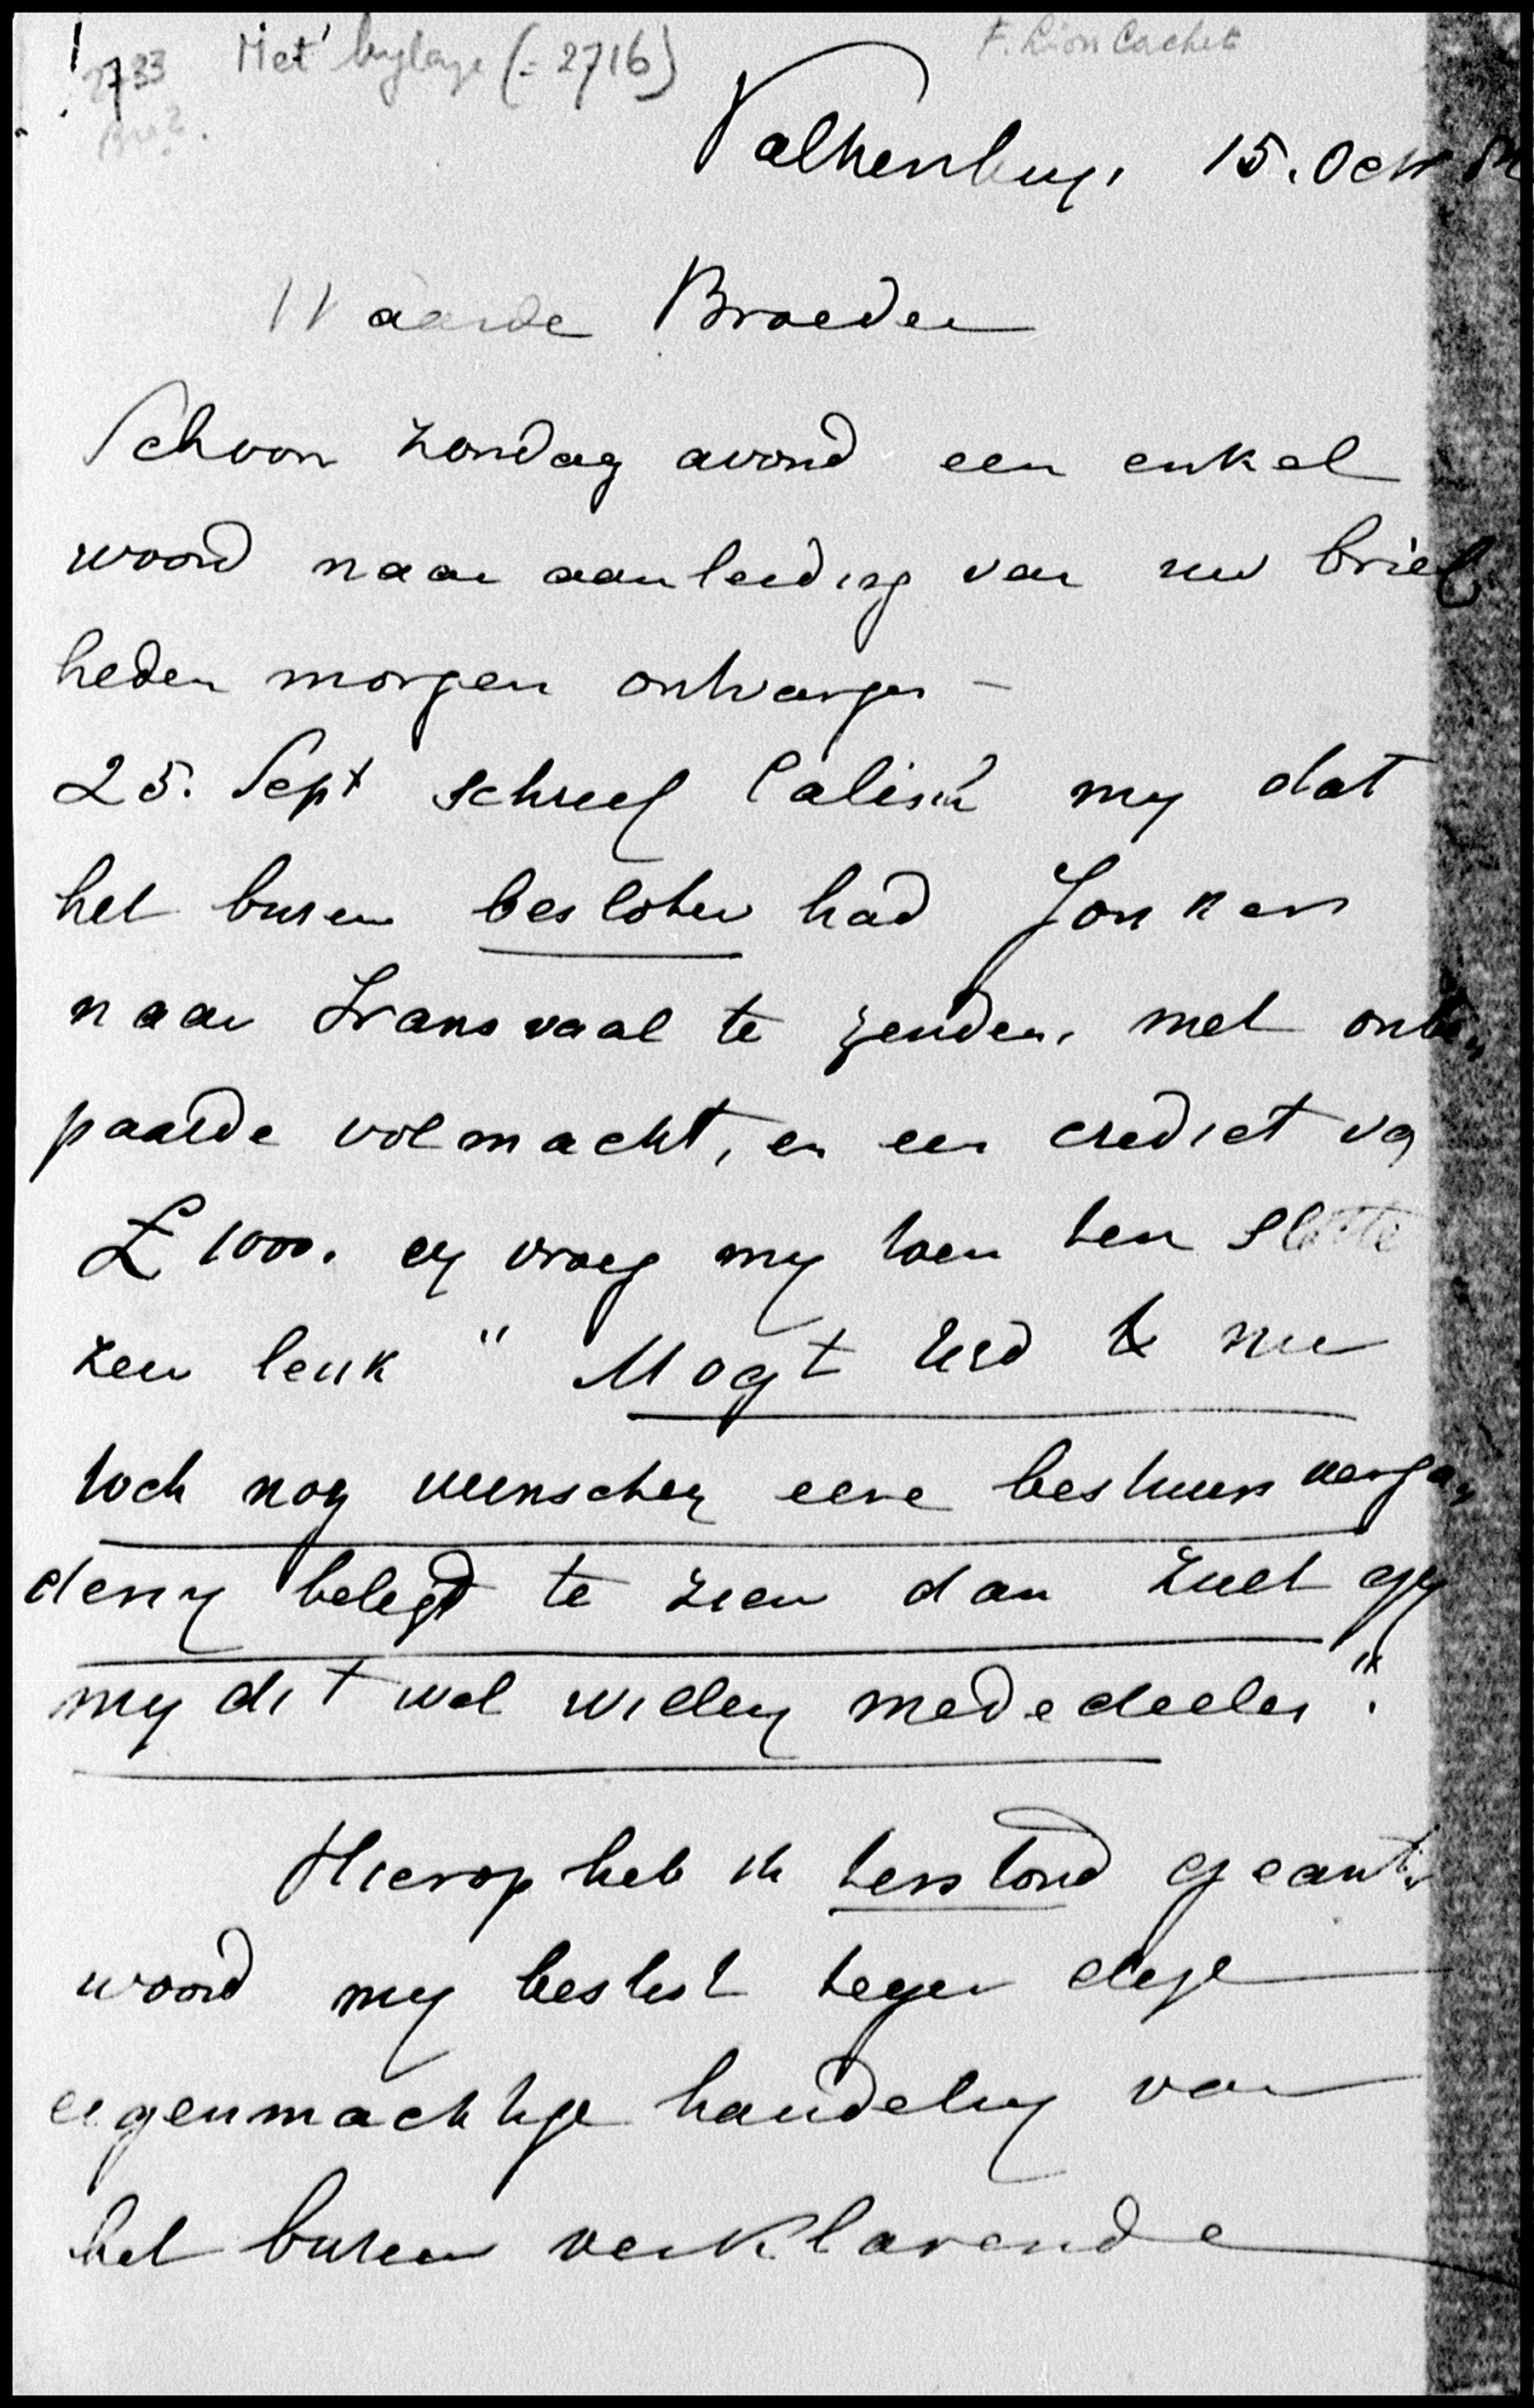 2733 Met bijlage (= 2716) F. Lion Cachet
Valkenburg, 15. Oct
Waarde Broeder
Schoon Zondag avond een enkel
woord naar aanleiding van uw brief
heden morgen ontvangen –
25. Sept schreef Calisch my dat
het bureau besloten had Jonker
naar Transvaal te zenden, met onbe„
paalde volmacht, en een crediet van
£ 1000. Hy vroeg my toen ten slotte
zeer leuk " Mogt UEd nu
toch nog wenschen eene bestuurs verga„
dering belegd te zien dan zult gy
my dit wel willen mededeelen".
Hierop heb ik terstond geant„
woord my beslist tegen deze
eigenmachtige handeling van
het bureau verklarende